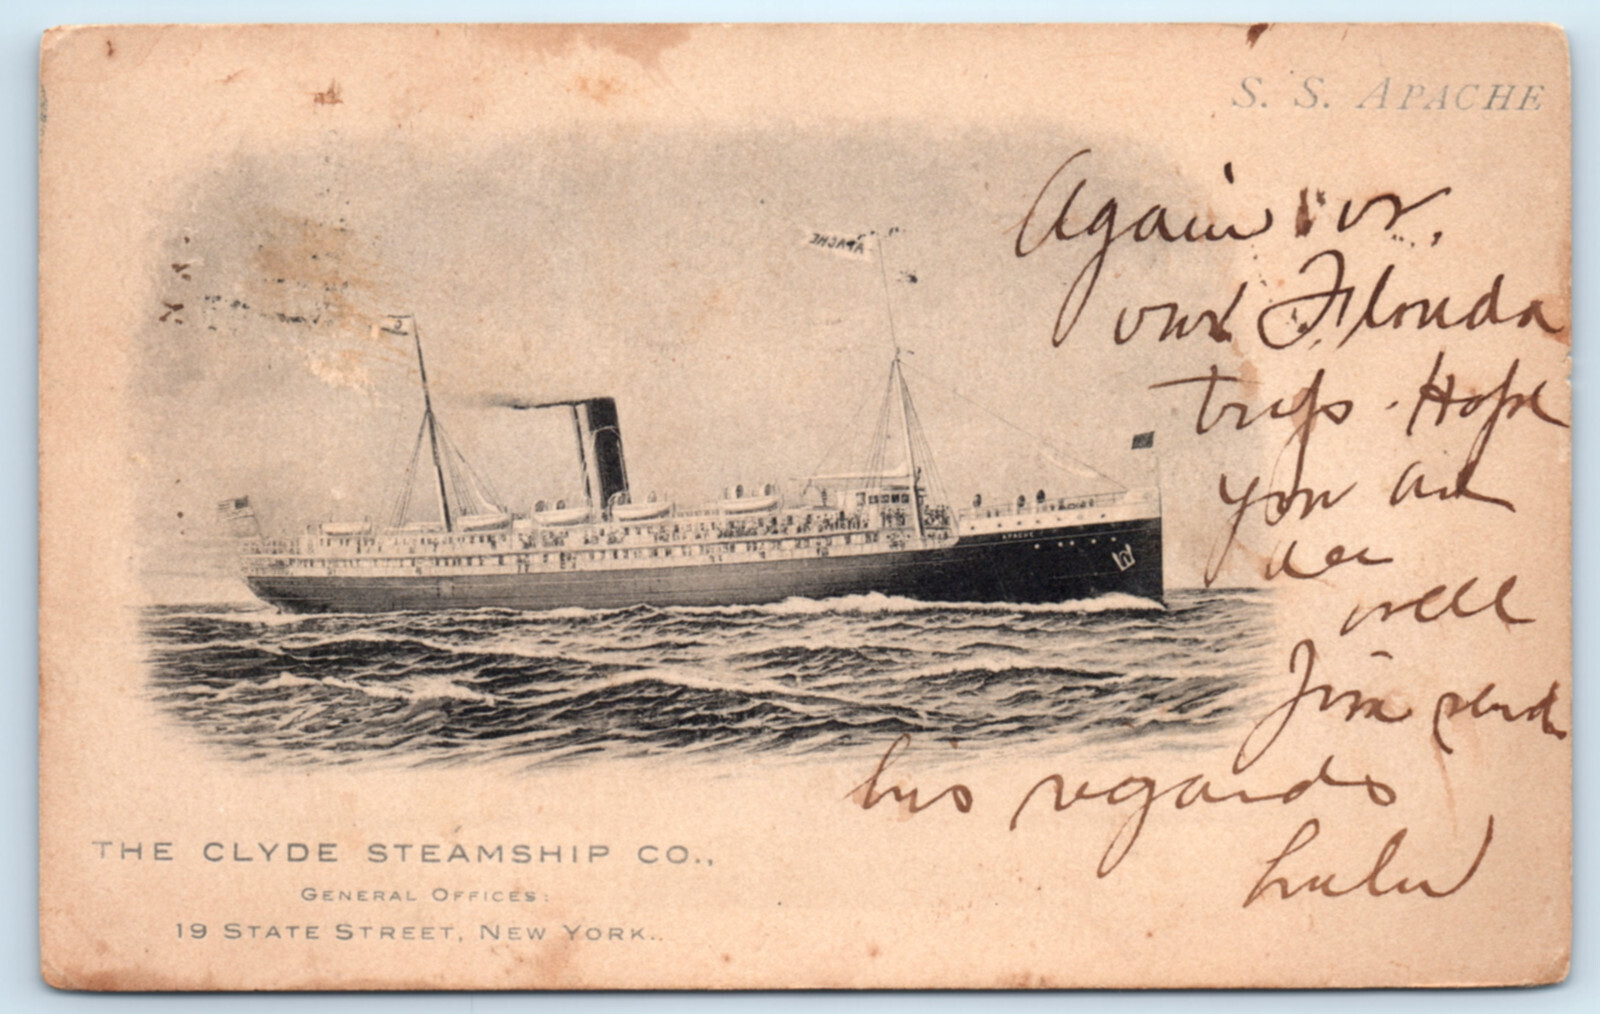 S. S. APACHE
Again
our Florida
trip. Hope
you are
all
well
Jim sends
his regards
Lulu
APACHE
APACHE
THE CLYDE STEAMSHIP CO.,
GENERAL OFFICES:
19 STATE STREET, NEW YORK.